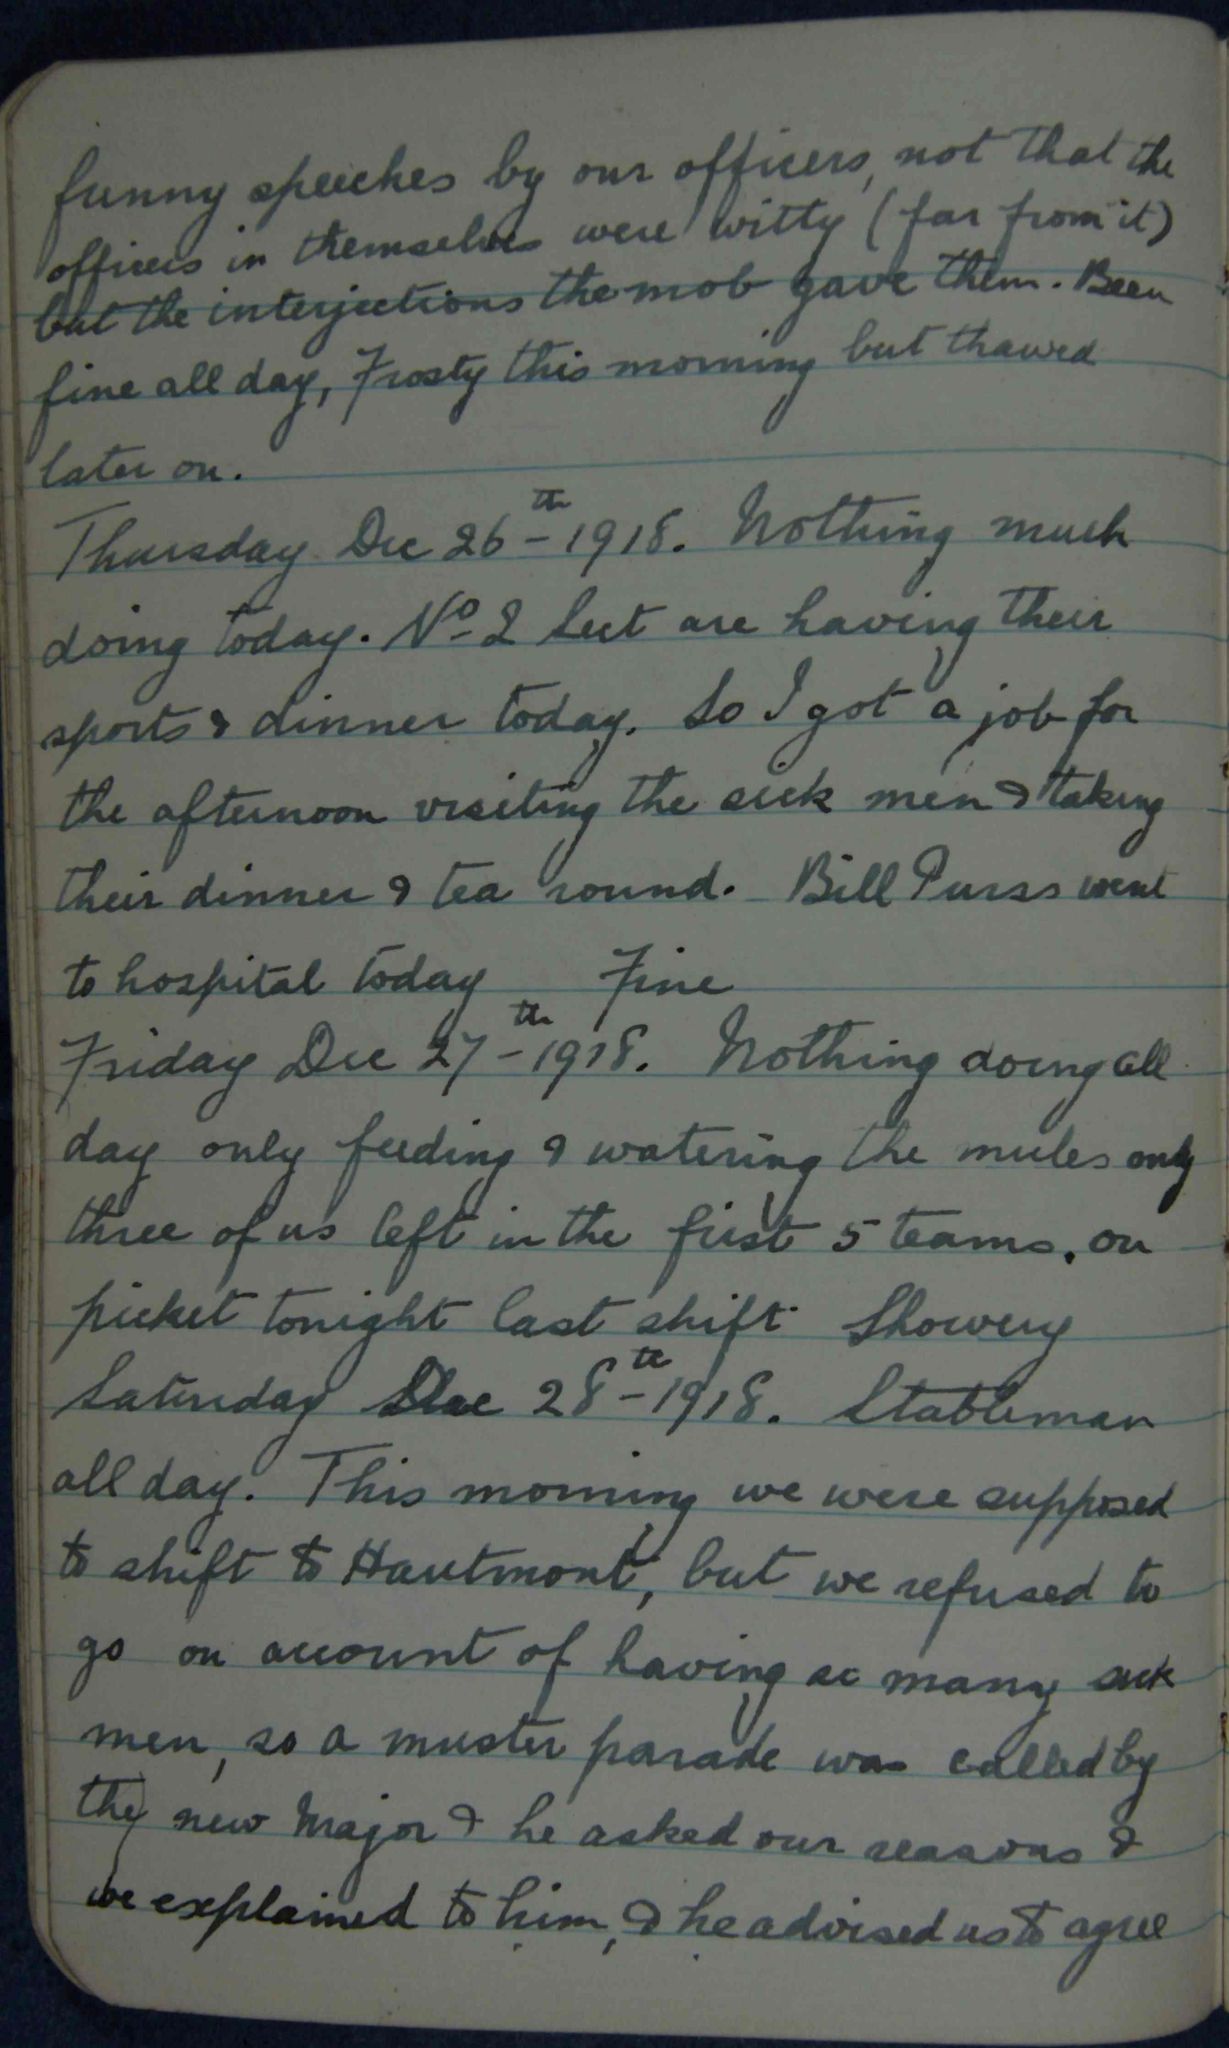 funny speeches by our officers, not that the
officers in themselves were witty (far from it)
but the interjections the mob gave them. Been
fine all day, Frosty this morning but thawed
later on.
Thursday Dec 26th 1918. Nothing much
doing today. No 2 Sect are having their
sports & dinner today. So I got a job for
the afternoon visiting the sick men & taking
their dinner & tea round. Bill Purss went
to hospital today Fine
Friday Dec 27th 1918. Nothing doing all
day only feeding & watering the mules only
three of us left in the first 5 teams. on
picket tonight last shift Showery
Saturday Dec 28th 1918. Stableman
all day. This morning we were supposed
to shift to Hautmont, but we refused to
go on account of having so many sick
men, so a muster parade was called by
the new Major & he asked our reasons &
we explained to him, & he advised us to agree